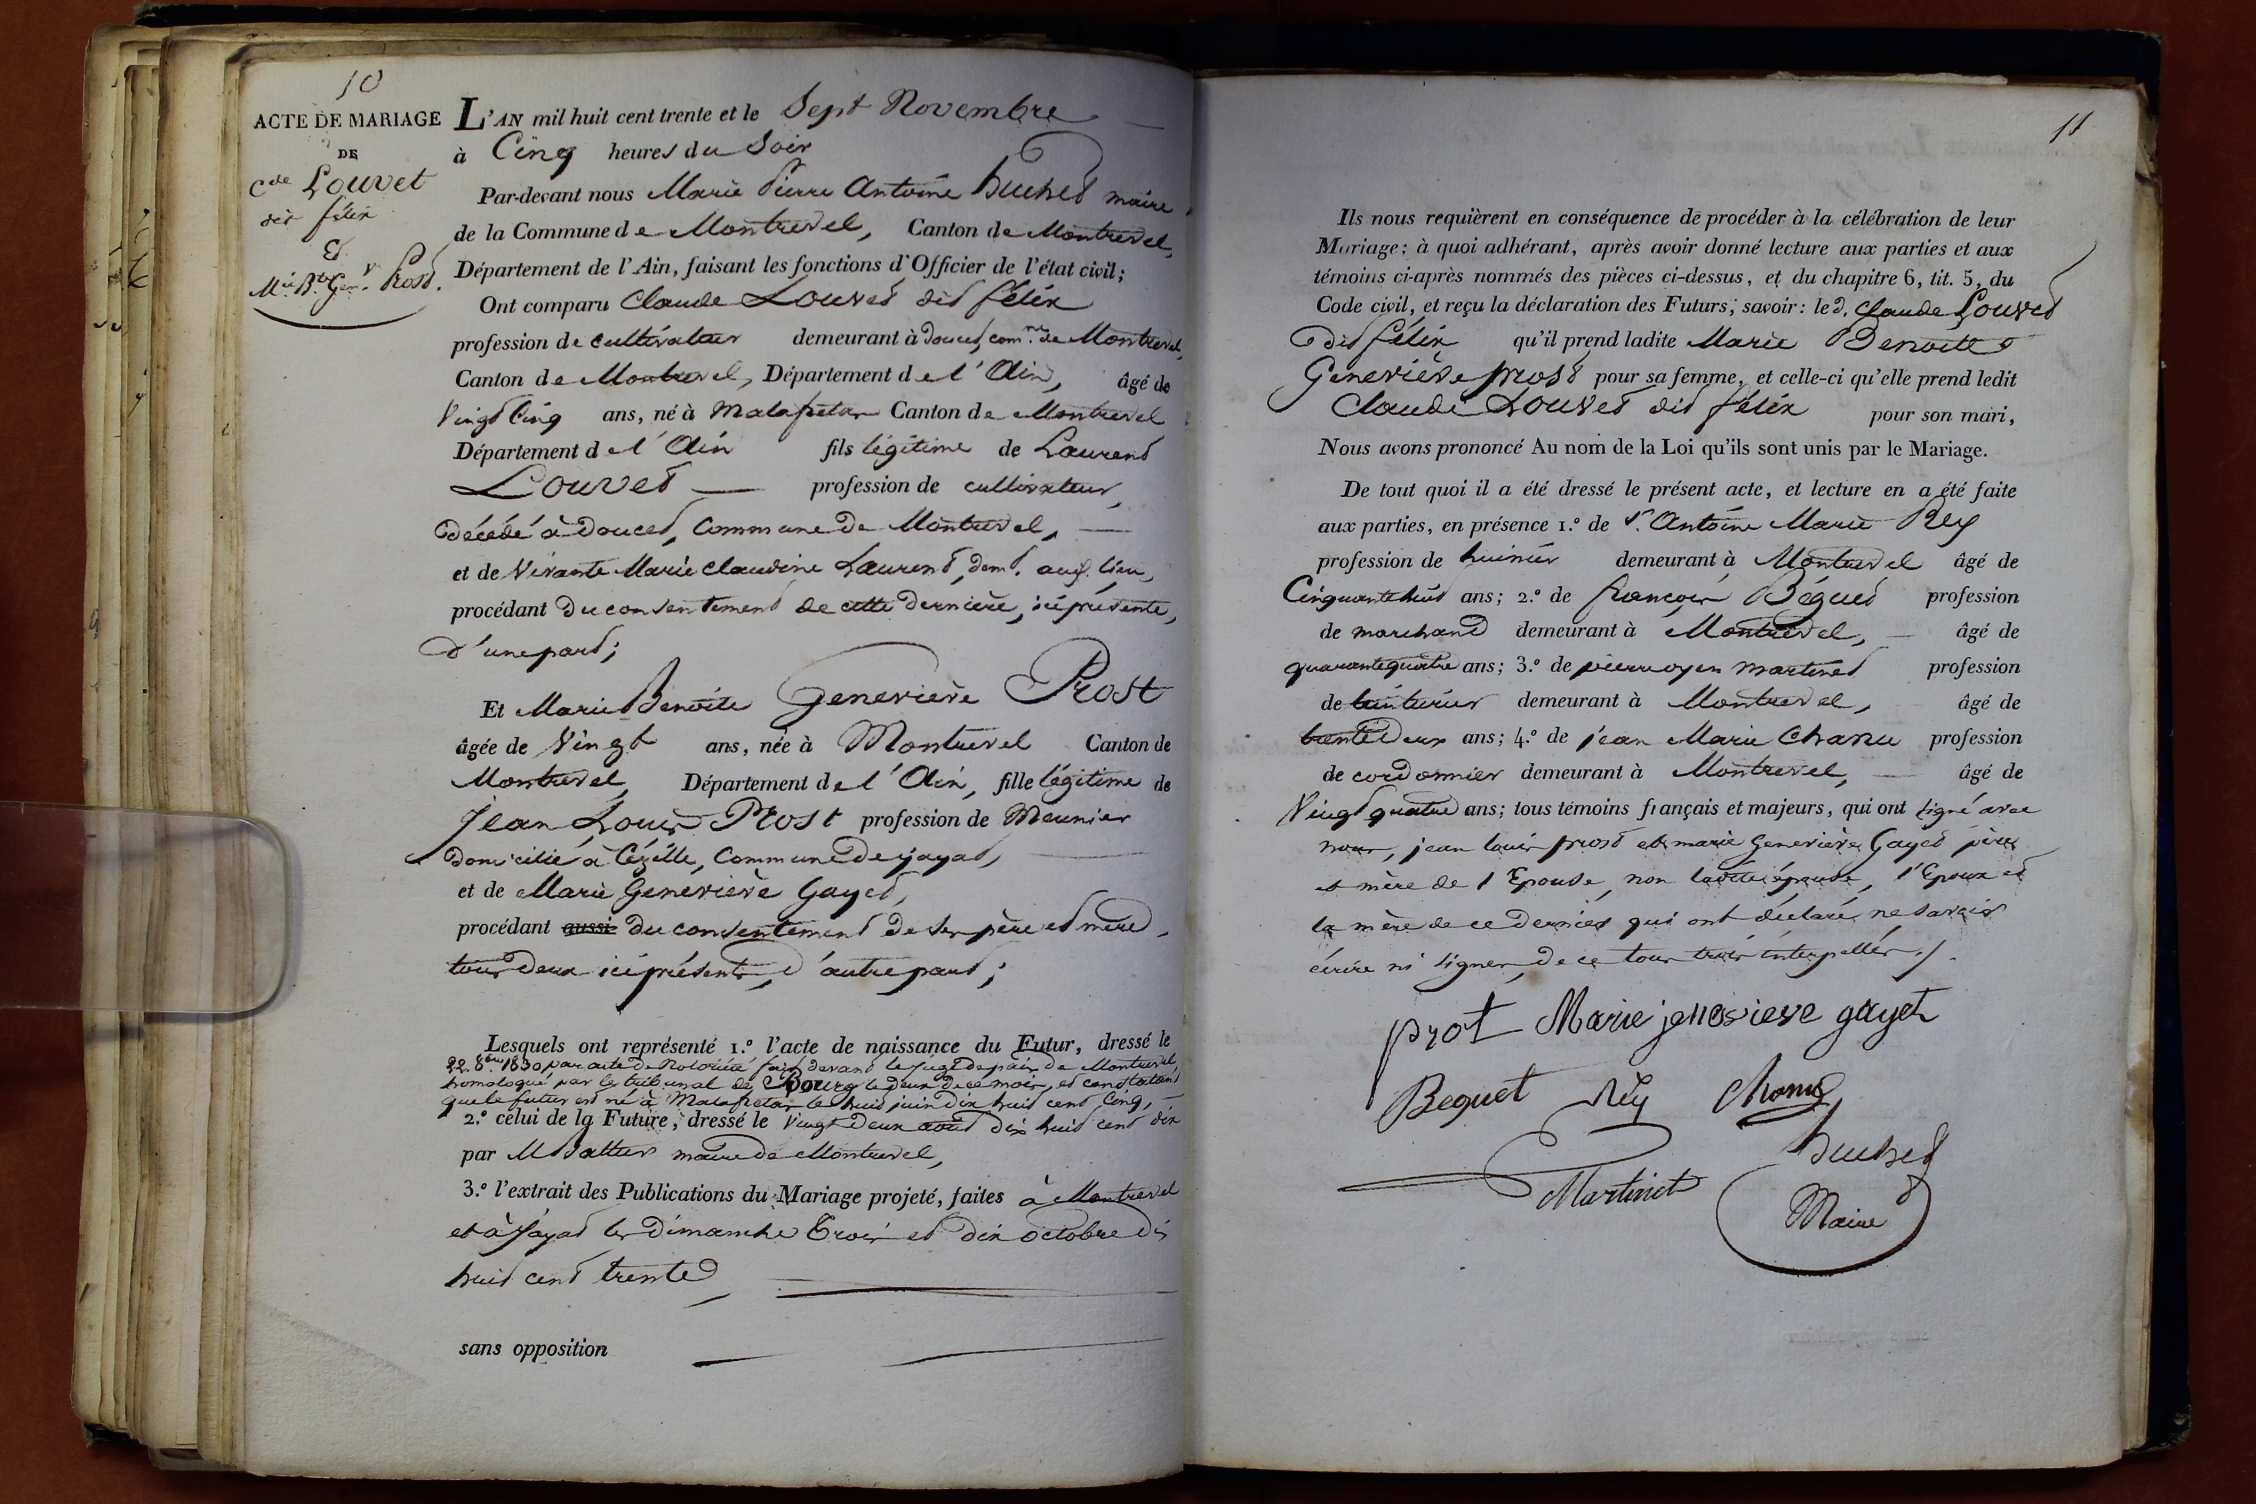 10
ACTE DE MARIAGE
DE
Cde Louvet
dit félix
Et
Mie Bte Gen.v Prost.
L'AN mil huit cent trente et le Sept Novembre
à Cinq heures du Soir
Par-devant nous Marie Pierre Antoine huchet maire
de la Commune de Montrevel, Canton de Montrevel,
Département de l'Ain, faisant les fonctions d'Officier de l'état civil;
Ont comparu Claude Louvet dit félix
profession de cultivateur demeurant à doucet, com.ne de Montrevel,
Canton de Montrevel, Département de l'Ain, âgé de
Vingt Cinq ans, né à Malafretaz Canton de Montrevel
Département de l'Ain fils légitime de Laurent
Louvet profession de cultivateur,
décédé à Doucet, Commune de Montrevel,
et de Vivante Marie Claudine Laurent, demt. audt. lieu,
procédant du consentement de cette dernière, ici présente,
d'une part;
Et Marie Benoite Geneviève Prost
âgée de Vingt ans, née à Montrevel Canton de
Montrevel, Département de l'Ain, fille légitime de
Jean Louis Prost profession de Meunier
domicilié à Cézille, Commune de jayat,
et de Marie Geneviève Gayet,
procédant aussi du consentement de ses père et mère,
tous deux ici présents, d'autre part;
Lesquels ont représenté 1.º l'acte de naissance du Futur, dressé le
22 8bre 1830 par acte de Notoriété fait devant le juge de paix de Montrevel
homologué par le tribunal de Bourg le deux de ce mois, et constatant
que le futur est né à Malafretaz le huit juin dix huit cent Cinq,
2.º celui de la Future, dressé le Vingt deux août dix huit cent dix
par M. maire de Montrevel,
3.º l'extrait des Publications du Mariage projeté, faites à Montrevel
et à Jayat les dimanche Trois et dix octobre dix
huit cent trente
sans opposition
11
Ils nous requièrent en conséquence de procéder à la célébration de leur
Mariage; à quoi adhérant, après avoir donné lecture aux parties et aux
témoins ci-après nommés des pièces ci-dessus, et du chapitre 6, tit. 5, du
Code civil, et reçu la déclaration des Futurs, savoir: le d. Claude Louvet
dit félix qu'il prend ladite Marie Benoitte
Geneviève prost pour sa femme, et celle-ci qu'elle prend ledit
Claude Louvet dit félix pour son mari,
Nous avons prononcé Au nom de la Loi qu'ils sont unis par le Mariage.
De tout quoi il a été dressé le présent acte, et lecture en a été faite
aux parties, en présence 1.º de Sr. Antoine Marie Rey
profession de huissier demeurant à Montrevel âgé de
Cinquante huit ans; 2.º de françois Béguet profession
de marchand demeurant à Montrevel, âgé de
quarante quatre ans; 3.º de pierre oyen martinet profession
de teinturier demeurant à Montrevel, âgé de
trente deux ans; 4.º de jean Marie Chanu profession
de cordonnier demeurant à Montrevel, âgé de
Vingt quatre ans; tous témoins français et majeurs, qui ont signé avec
nous, jean louis prost et marie Geneviève Gayet père
et mère de l'Epouse, non ladite épouse, l'Epoux et
la mère de ce dernier qui ont déclaré ne savoir
écrire ni signer, de ce tous trois interpellés ./.
prot Marie jenevieve gayet
Beguet Rey Chanu
Martinet huchet
Maire